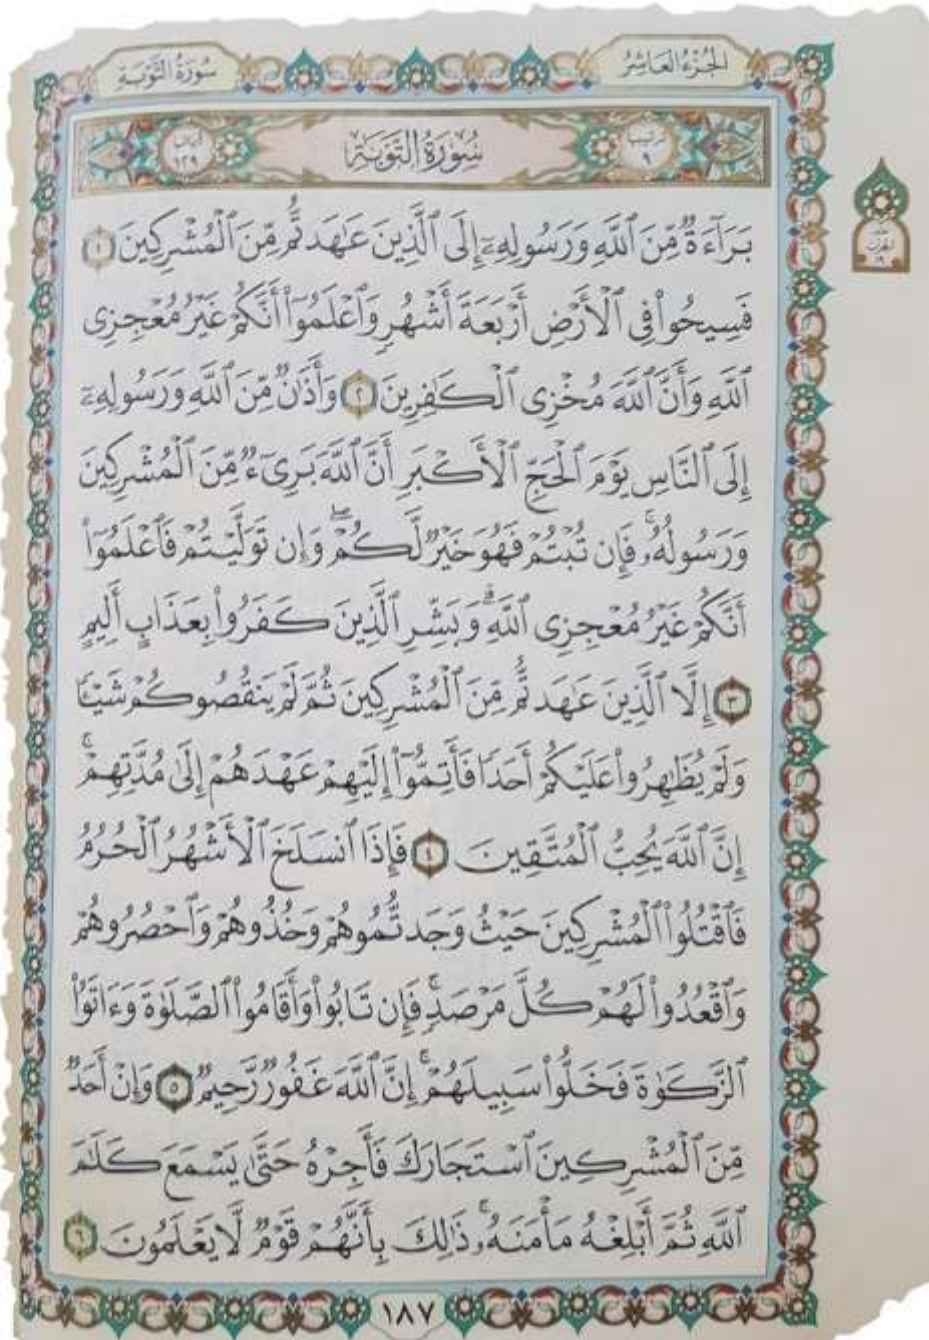 الجُزْءُ العَاشِرُ
سُورَةُ التَّوْبَةِ
ترتيبها ٩
سُورَةُ التَّوْبَةِ
١٢٩
بَرَآءَةٌ مِّنَ ٱللَّهِ وَرَسُولِهِۦٓ إِلَى ٱلَّذِينَ عَٰهَدتُّم مِّنَ ٱلْمُشْرِكِينَ ١
فَسِيحُوا۟ فِى ٱلْأَرْضِ أَرْبَعَةَ أَشْهُرٍ وَٱعْلَمُوٓا۟ أَنَّكُمْ غَيْرُ مُعْجِزِى
ٱللَّهِ وَأَنَّ ٱللَّهَ مُخْزِى ٱلْكَٰفِرِينَ ٢ وَأَذَٰنٌ مِّنَ ٱللَّهِ وَرَسُولِهِۦٓ
إِلَى ٱلنَّاسِ يَوْمَ ٱلْحَجِّ ٱلْأَكْبَرِ أَنَّ ٱللَّهَ بَرِىٓءٌ مِّنَ ٱلْمُشْرِكِينَ
وَرَسُولُهُۥ ۚ فَإِن تُبْتُمْ فَهُوَ خَيْرٌ لَّكُمْ ۖ وَإِن تَوَلَّيْتُمْ فَٱعْلَمُوٓا۟
أَنَّكُمْ غَيْرُ مُعْجِزِى ٱللَّهِ ۗ وَبَشِّرِ ٱلَّذِينَ كَفَرُوا۟ بِعَذَابٍ أَلِيمٍ
٣ إِلَّا ٱلَّذِينَ عَٰهَدتُّم مِّنَ ٱلْمُشْرِكِينَ ثُمَّ لَمْ يَنقُصُوكُمْ شَيْـًٔا
وَلَمْ يُظَٰهِرُوا۟ عَلَيْكُمْ أَحَدًا فَأَتِمُّوٓا۟ إِلَيْهِمْ عَهْدَهُمْ إِلَىٰ مُدَّتِهِمْ ۚ
إِنَّ ٱللَّهَ يُحِبُّ ٱلْمُتَّقِينَ ٤ فَإِذَا ٱنسَلَخَ ٱلْأَشْهُرُ ٱلْحُرُمُ
فَٱقْتُلُوا۟ ٱلْمُشْرِكِينَ حَيْثُ وَجَدتُّمُوهُمْ وَخُذُوهُمْ وَٱحْصُرُوهُمْ
وَٱقْعُدُوا۟ لَهُمْ كُلَّ مَرْصَدٍ ۚ فَإِن تَابُوا۟ وَأَقَامُوا۟ ٱلصَّلَوٰةَ وَءَاتَوُا۟
ٱلزَّكَوٰةَ فَخَلُّوا۟ سَبِيلَهُمْ ۚ إِنَّ ٱللَّهَ غَفُورٌ رَّحِيمٌ ٥ وَإِنْ أَحَدٌ
مِّنَ ٱلْمُشْرِكِينَ ٱسْتَجَارَكَ فَأَجِرْهُ حَتَّىٰ يَسْمَعَ كَلَٰمَ
ٱللَّهِ ثُمَّ أَبْلِغْهُ مَأْمَنَهُۥ ۚ ذَٰلِكَ بِأَنَّهُمْ قَوْمٌ لَّا يَعْلَمُونَ ٦
١٨٧